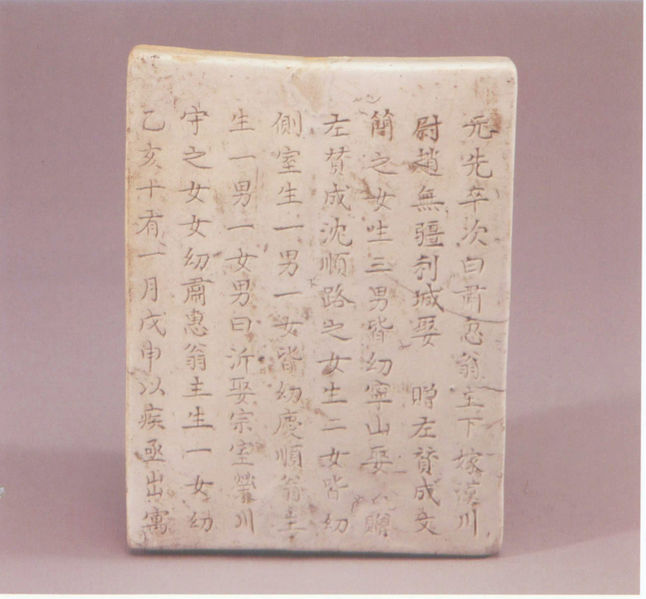 元先卒次曰肅惠翁主下嫁漢川
尉趙無疆利城娶 贈左賛成文
簡之女生三男皆幼寧山娶 贈
左賛成沈順路之女生二女皆幼
側室生一男一女皆幼慶順翁主
生一男一女男曰沂娶宗室川
守之女女幼肅惠翁主生一女幼
乙亥十有一月戊申以疾亟出寓